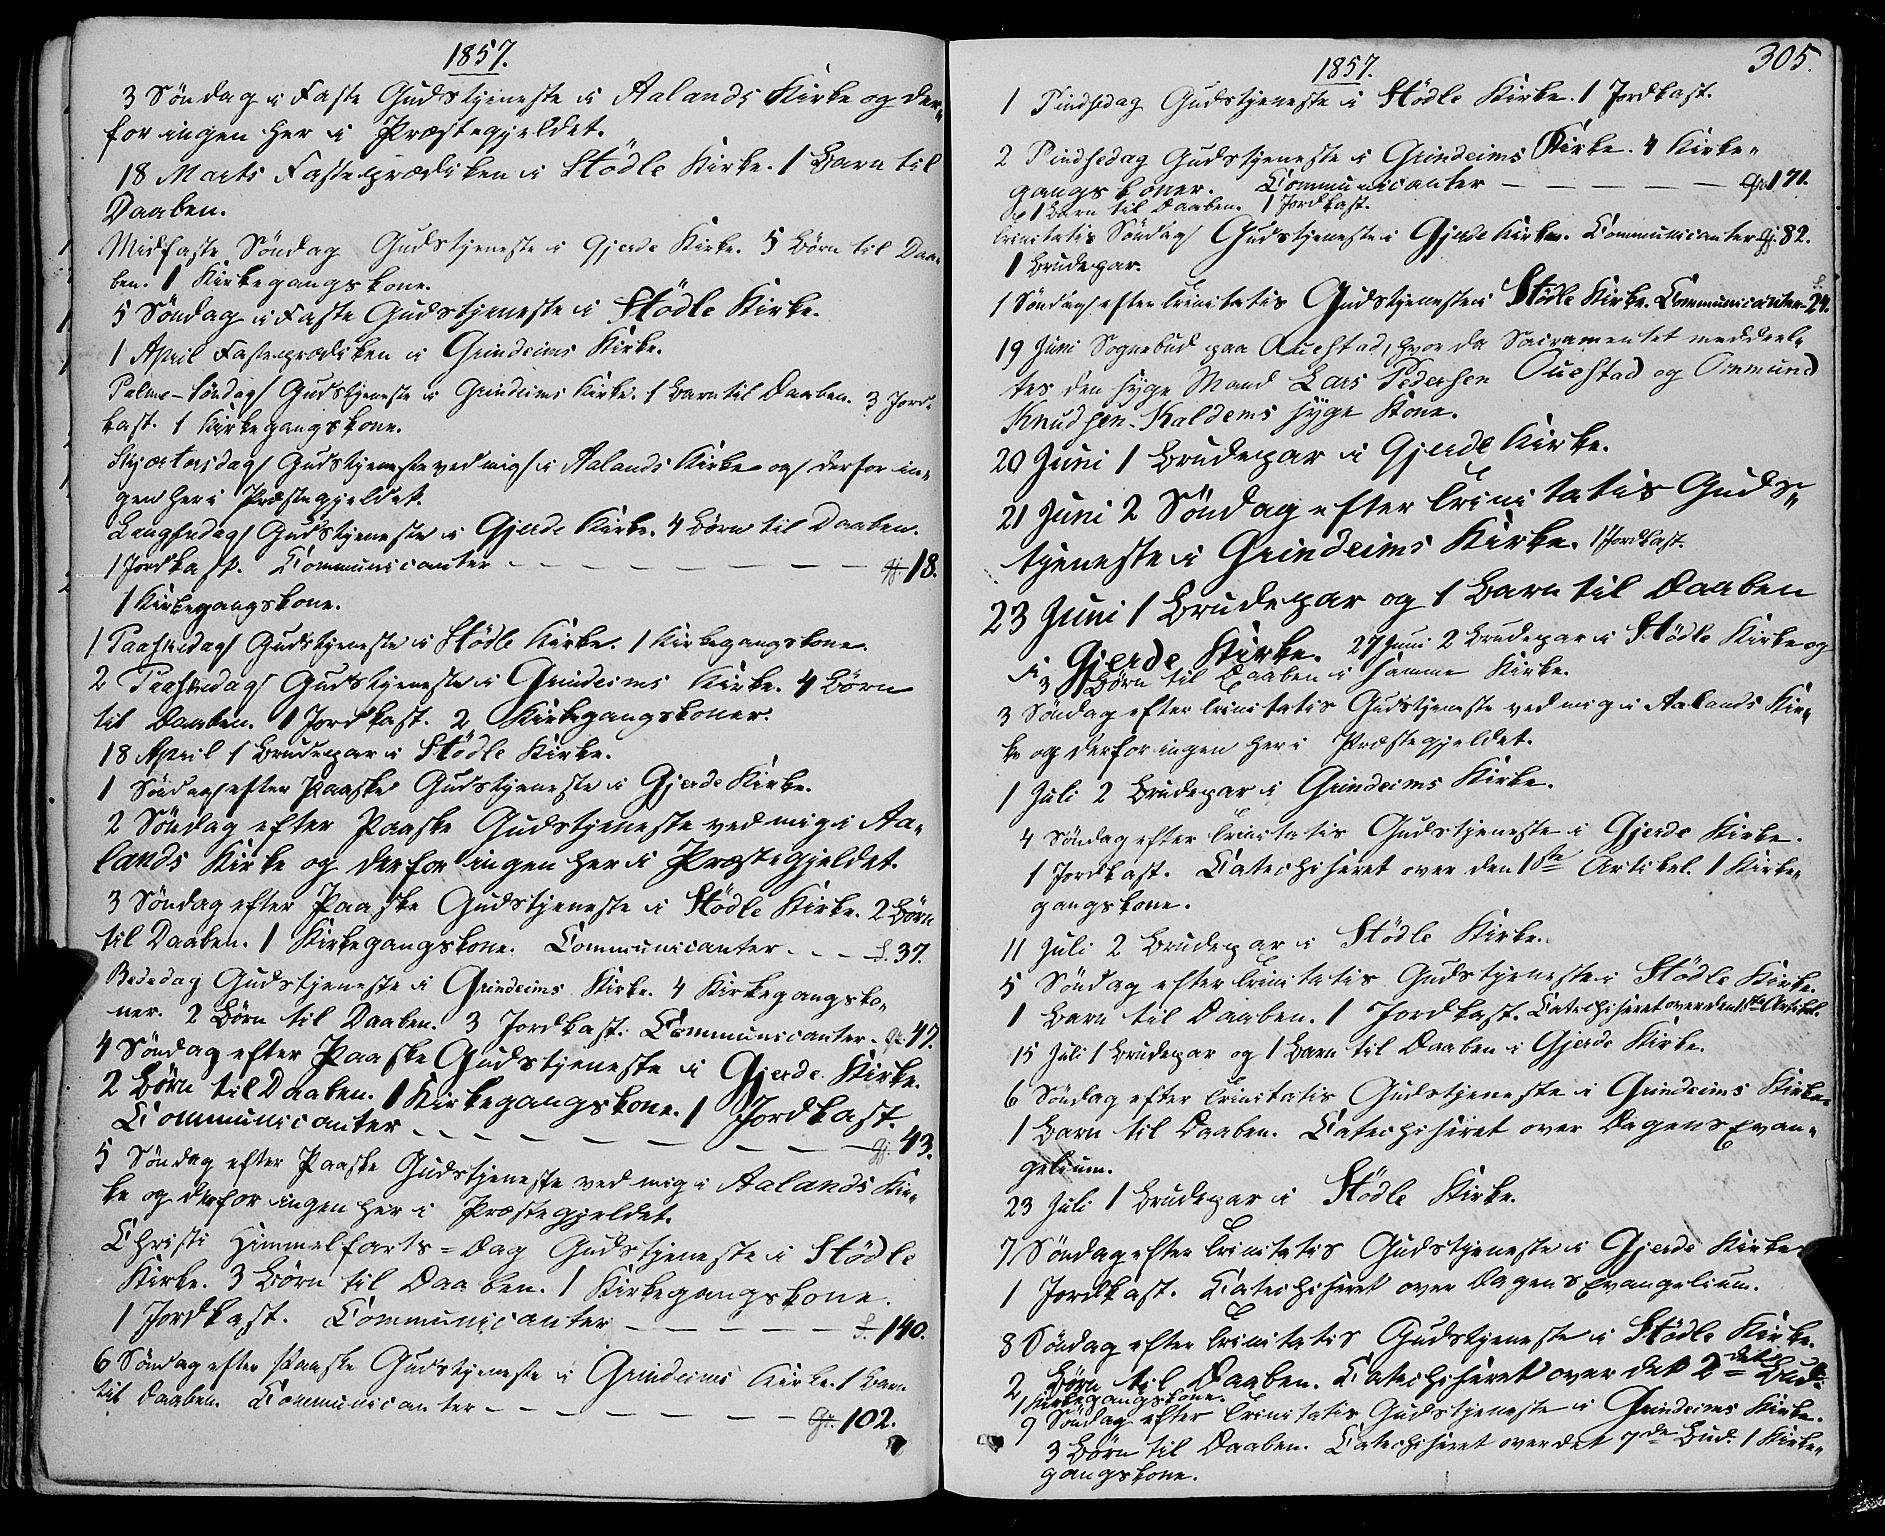 1857.
3 Söndag i Faste Gudstjeneste i Aalands Kirke og der„
for ingen her i Præstegjeldet.
18 Marts Fasteprædiken i Stödle Kirke. 1 Barn til
Daaben.
Midfaste Söndag Gudstjeneste i Gjerde Kirke. 5 Börn til Daa„
ben. 1 Kirkegangskone.
5 Söndag i Faste Gudstjeneste i Stödle Kirke.
1 April Fasteprædiken i Grindeims Kirke.
Palme-Söndag Gudstjeneste i Grindeims Kirke. 1 Barn til Daaben. 3 Jord„
kast. 1 Kirkegangskone.
Skjærtorsdag Gudstjeneste ved mig i Aalands Kirke og derfor in„
gen her i Præstegjeldet.
Langfredag Gudstjeneste i Gjerde Kirke. 4 Börn til Daaben.
1 Jordkast. Communicanter - - - - - - - - gj. 18.
1 Kirkegangskone.
1 Paaskedag Gudstjeneste i Stödle Kirke. 1 Kirkegangskone.
2 Paaskedag Gudstjeneste i Grindeims Kirke. 4 Börn
til Daaben. 1 Jordkast. 2 Kirkegangskoner.
18 April 1 Brudepar i Stödle Kirke.
1 Söndag efter Paaske Gudstjeneste i Gjerde Kirke.
2 Söndag efter Paaske Gudstjeneste ved mig i Aa„
lands Kirke og derfor ingen her i Præstegjeldet.
3 Söndag efter Paaske Gudstjeneste i Stödle Kirke. 2 Börn
til Daaben. 1 Kirkegangskone. Communicanter - - - S. 37.
Bededag Gudstjeneste i Grindeims Kirke. 4 Kirkegangsko„
ner. 2 Börn til Daaben. 3 Jordkast. Communicanter - Gr. 47.
4 Söndag efter Paaske Gudstjeneste i Gjerde Kirke.
2 Börn til Daaben. 1 Kirkegangskone. 1 Jordkast.
Communicanter - - - - - - - - - gj. 43.
5 Söndag efter Paaske Gudstjeneste ved mig i Aalands Kir„
ke og derfor ingen her i Præstegjeldet.
Christi Himmelfarts-Dag Gudstjeneste i Stödle
Kirke. 3 Börn til Daaben. 1 Kirkegangskone.
1 Jordkast. Communicanter - - - - - S. 140.
6 Söndag efter Paaske Gudstjeneste i Grindeims Kirke. 1 Barn
til Daaben. Communicanter - - - - - - - Gr. 102.
305.
1857.
1 Pindsedag Gudstjeneste i Stödle Kirke. 1 Jordkast.
2 Pindsedag Gudstjeneste i Grindeims Kirke. 4 Kirke„
gangskoner. Communicanter - - - - - Gr. 171.
1 Barn til Daaben. 1 Jordkast.
Trinitatis Söndag Gudstjeneste i Gjerde Kirke. Communicanter gj. 82.
1 Brudepar.
1 Söndag efter Trinitatis Gudstjeneste i Stödle Kirke. Communicanter S. 24.
19 Juni Sognebud paa Ouestad, hvor da Sacramentet meddeel„
tes den syge Mand Lars Pedersen Ouestad og Omund
Knudsen Kaldems syge Kone.
20 Juni 1 Brudepar i Gjerde Kirke.
21 Juni 2 Söndag efter Trinitatis Guds„
tjeneste i Grindeims Kirke. 1 Jordkast.
23 Juni 1 Brudepar og 1 Barn til Daaben
i Gjerde Kirke. 27 Juni 2 Brudepar i Stödle Kirke og
3 Börn til Daaben i samme Kirke.
3 Söndag efter Trinitatis Gudstjeneste ved mig i Aalands Kir„
ke og derfor ingen her i Præstegjeldet.
1 Juli 2 Brudepar i Grindeims Kirke.
4 Söndag efter Trinitatis Gudstjeneste i Gjerde Kirke.
1 Jordkast. Catechiseret over den 1ste Artikel. 1 Kirke„
gangskone.
11 Juli 2 Brudepar i Stödle Kirke.
5 Söndag efter Trinitatis Gudstjeneste i Stödle Kirke.
1 Barn til Daaben. 1 Jordkast. Catechiseret over den 1ste Artikel.
15 Juli 1 Brudepar og 1 Barn til Daaben i Gjerde Kirke.
6 Söndag efter Trinitatis Gudstjeneste i Grindeims Kirke.
1 Barn til Daaben. Catechiseret over Dagens Evan„
gelium.
23 Juli 1 Brudepar i Stödle Kirke.
7 Söndag efter Trinitatis Gudstjeneste i Gjerde Kirke
1 Jordkast. Catechiseret over Dagens Evangelium.
8 Söndag efter Trinitatis Gudstjeneste i Stödle Kirke.
2 Börn til Daaben. Catechiseret over det 2det Bud.
1 Kirkegangskone.
9 Söndag efter Trinitatis Gudstjeneste i Grindeims Kirke.
3 Börn til Daaben. Catechiseret over det 7de Bud. 1 Kirke„
gangskone.